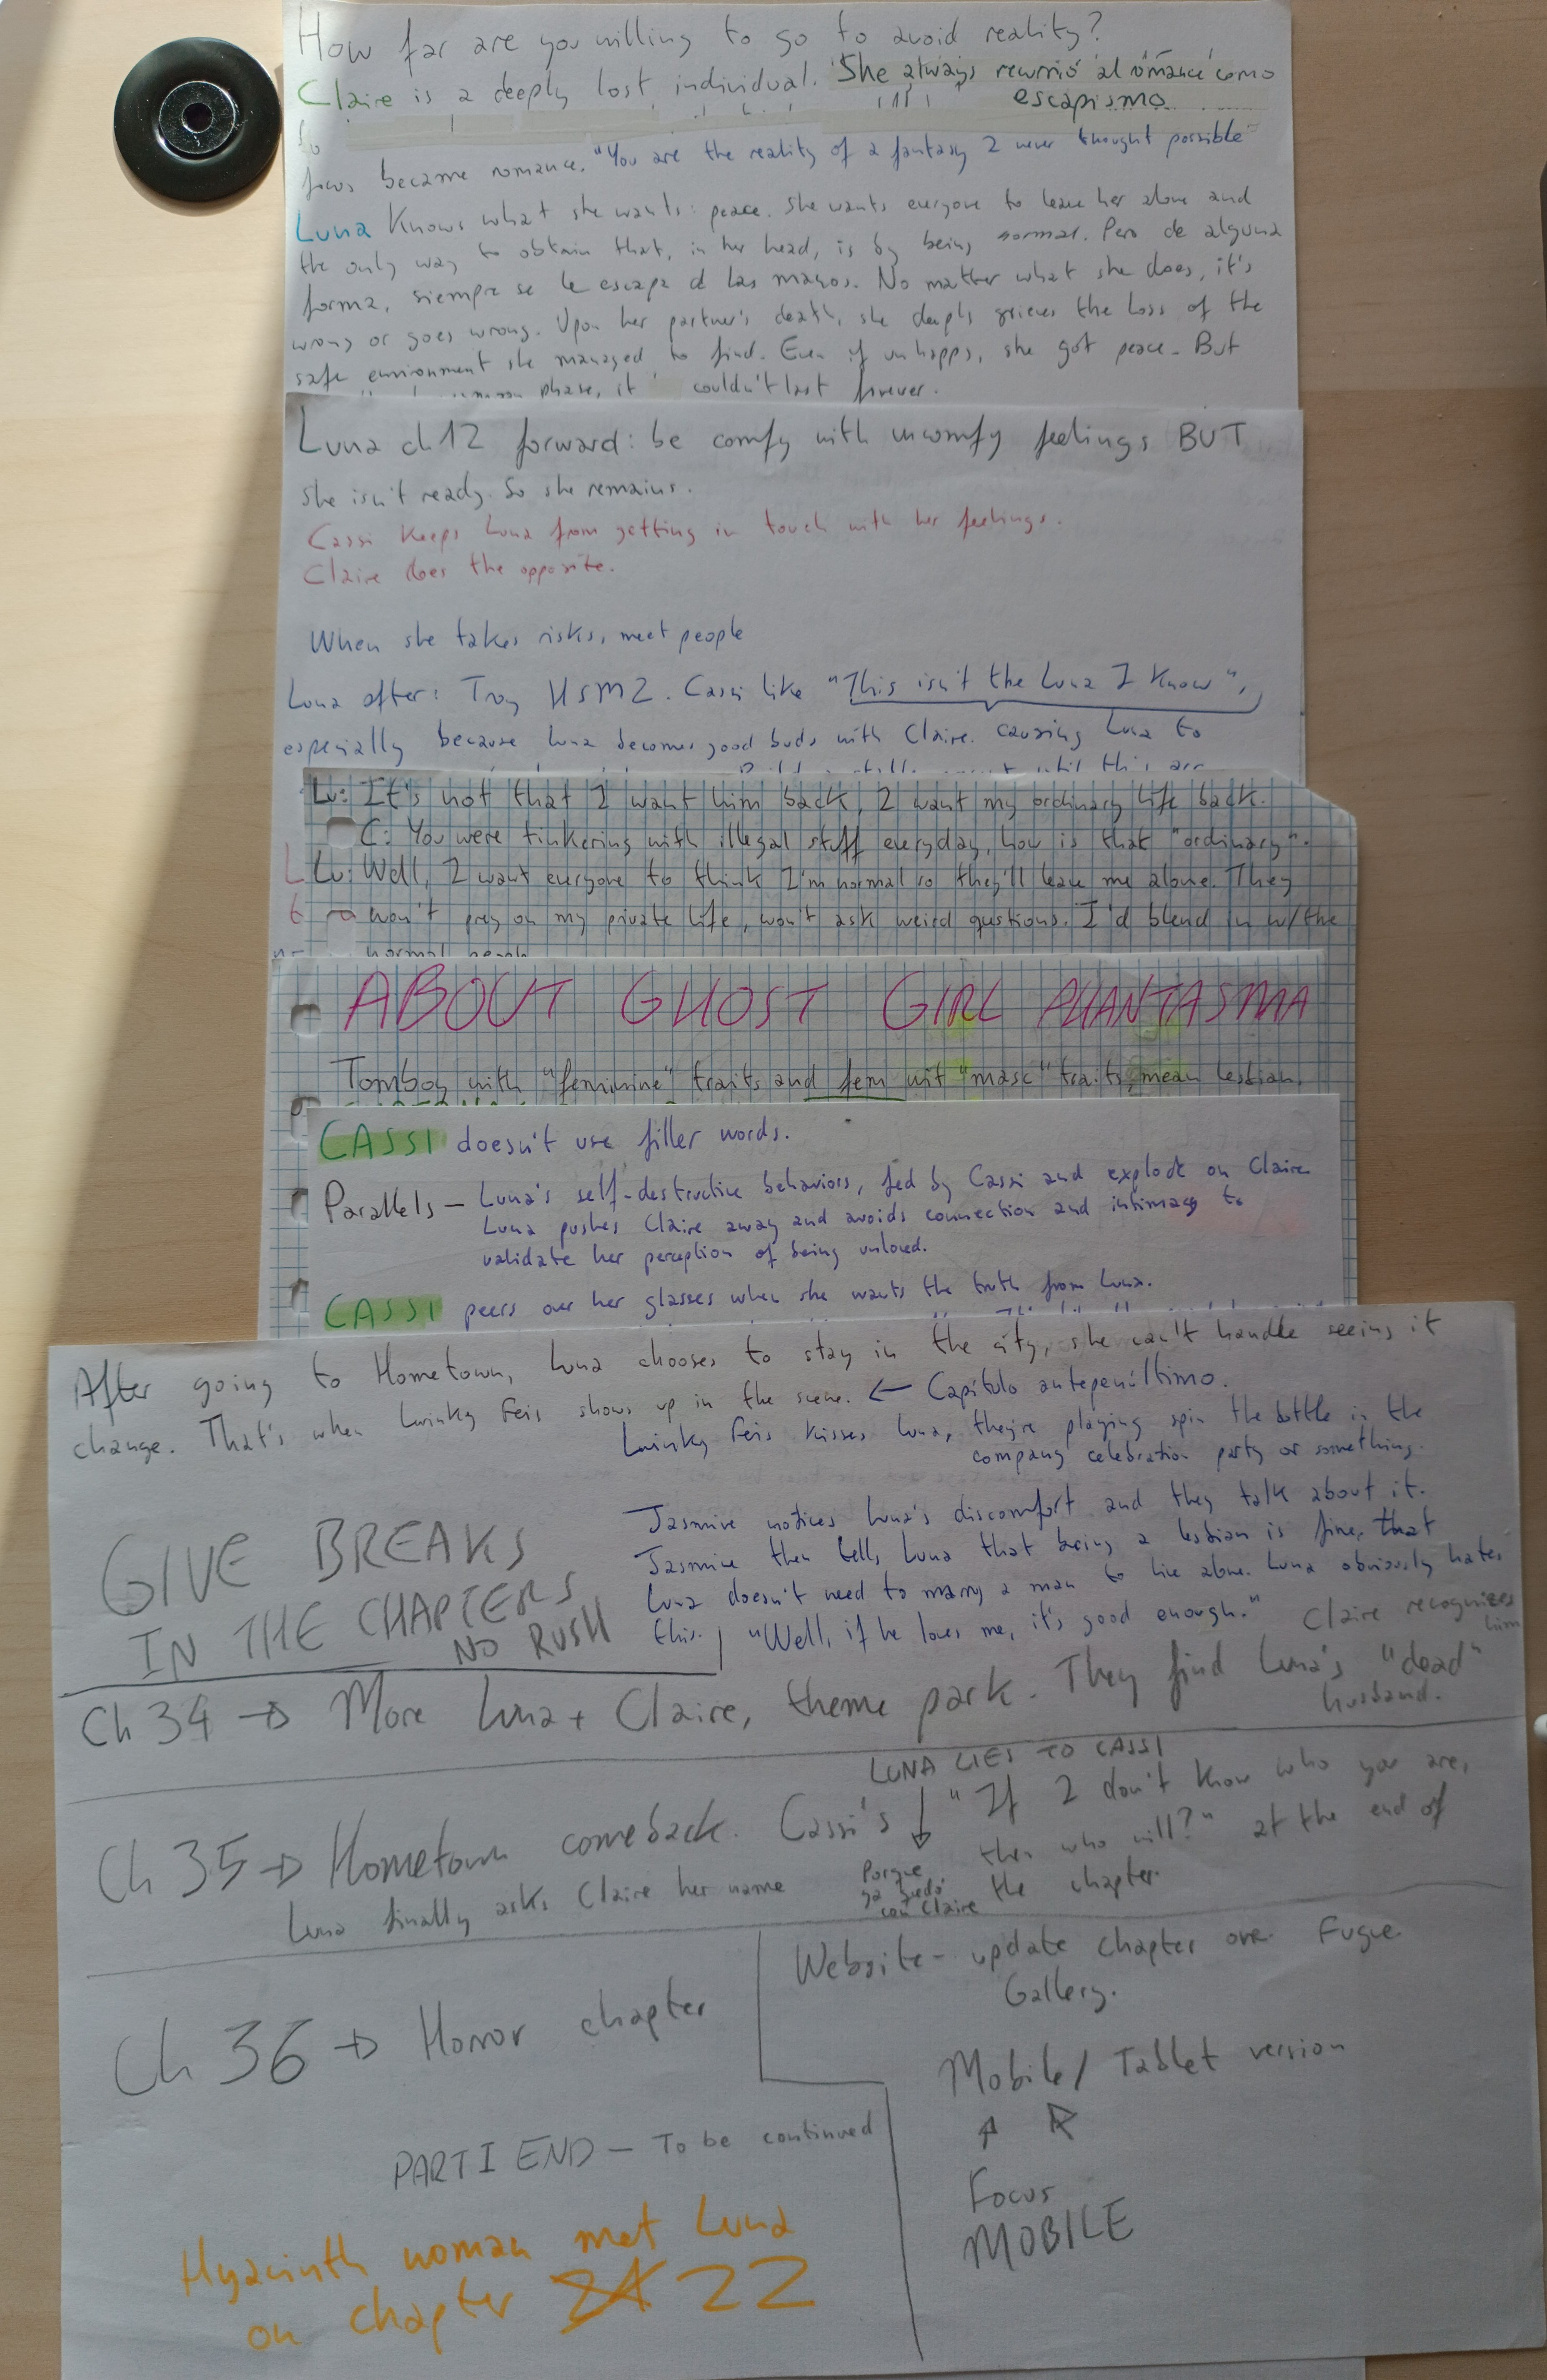 How far are you willing to go to avoid reality?
Claire is a deeply lost individual. She always recurrió al romance como
escapismo
So
focus became romance. "You are the reality of a fantasy I never thought possible"
Luna knows what she wants: peace. She wants everyone to leave her alone and
the only way to obtain that, in her head, is by being normal. Pero de alguna
forma, siempre se le escapa d las manos. No matter what she does, it's
wrong or goes wrong. Upon her partner's death, she deeply grieves the loss of the
safe environment she managed to find. Even if unhappy, she got peace. But
phase, it couldn't last forever.
Luna ch 12 forward: be comfy with uncomfy feelings BUT
she isn't ready. So she remains.
Cassi keeps Luna from getting in touch with her feelings.
Claire does the opposite.
When she takes risks, meet people
Luna after: Troy HSM2. Cassi like "This isn't the Luna I know",
especially because Luna becomes good buds with Claire. causing Luna to
until this arc
Lu: It's not that I want him back, I want my ordinary life back.
C: You were tinkering with illegal stuff everyday, how is that "ordinary".
Lu: Well, I want everyone to think I'm normal so they'll leave me alone. They
won't pry on my private life, won't ask weird qustions. I'd blend in w/the
normal people
ABOUT GHOST GIRL PHANTASMA
Tomboy with "feminine" traits and fem wit "masc" traits, mean lesbian.
CASSI doesn't use filler words.
Parallels — Luna's self-destructive behaviors, fed by Cassi and explode on Claire.
Luna pushes Claire away and avoids connection and intimacy to
validate her perception of being unloved.
CASSI peers over her glasses when she wants the truth from Luna.
After going to Hometown, Luna chooses to stay in the city, she can't handle seeing it
change. That's when Lwinky Feis shows up in the scene. ← Capítulo antepenúltimo.
Lwinky Feis kisses Luna, they're playing spin the bottle in the
company celebration party or something.
Jasmine notices Luna's discomfort and they talk about it.
Jasmine then tells Luna that being a lesbian is fine, that
Luna doesn't need to marry a man to live alone. Luna obviously hates
this. "Well, if he loves me, it's good enough."
GIVE BREAKS
IN THE CHAPTERS
NO RUSH
Claire recognizes
him
Ch 34 → More Luna + Claire, theme park. They find Luna's "dead"
husband.
LUNA LIES TO CASSI
Ch 35 → Hometown comeback. Cassi's ↓ "If I don't know who you are,
then who will?" at the end of
the chapter.
Porque
ya quedó
con Claire
Luna finally asks Claire her name
Website - update chapter one. Fugue.
Gallery.
Ch 36 → Horror chapter
Mobile / Tablet version
PART I END — To be continued
Focus
MOBILE
Hyacinth woman met Luna
on chapter 22